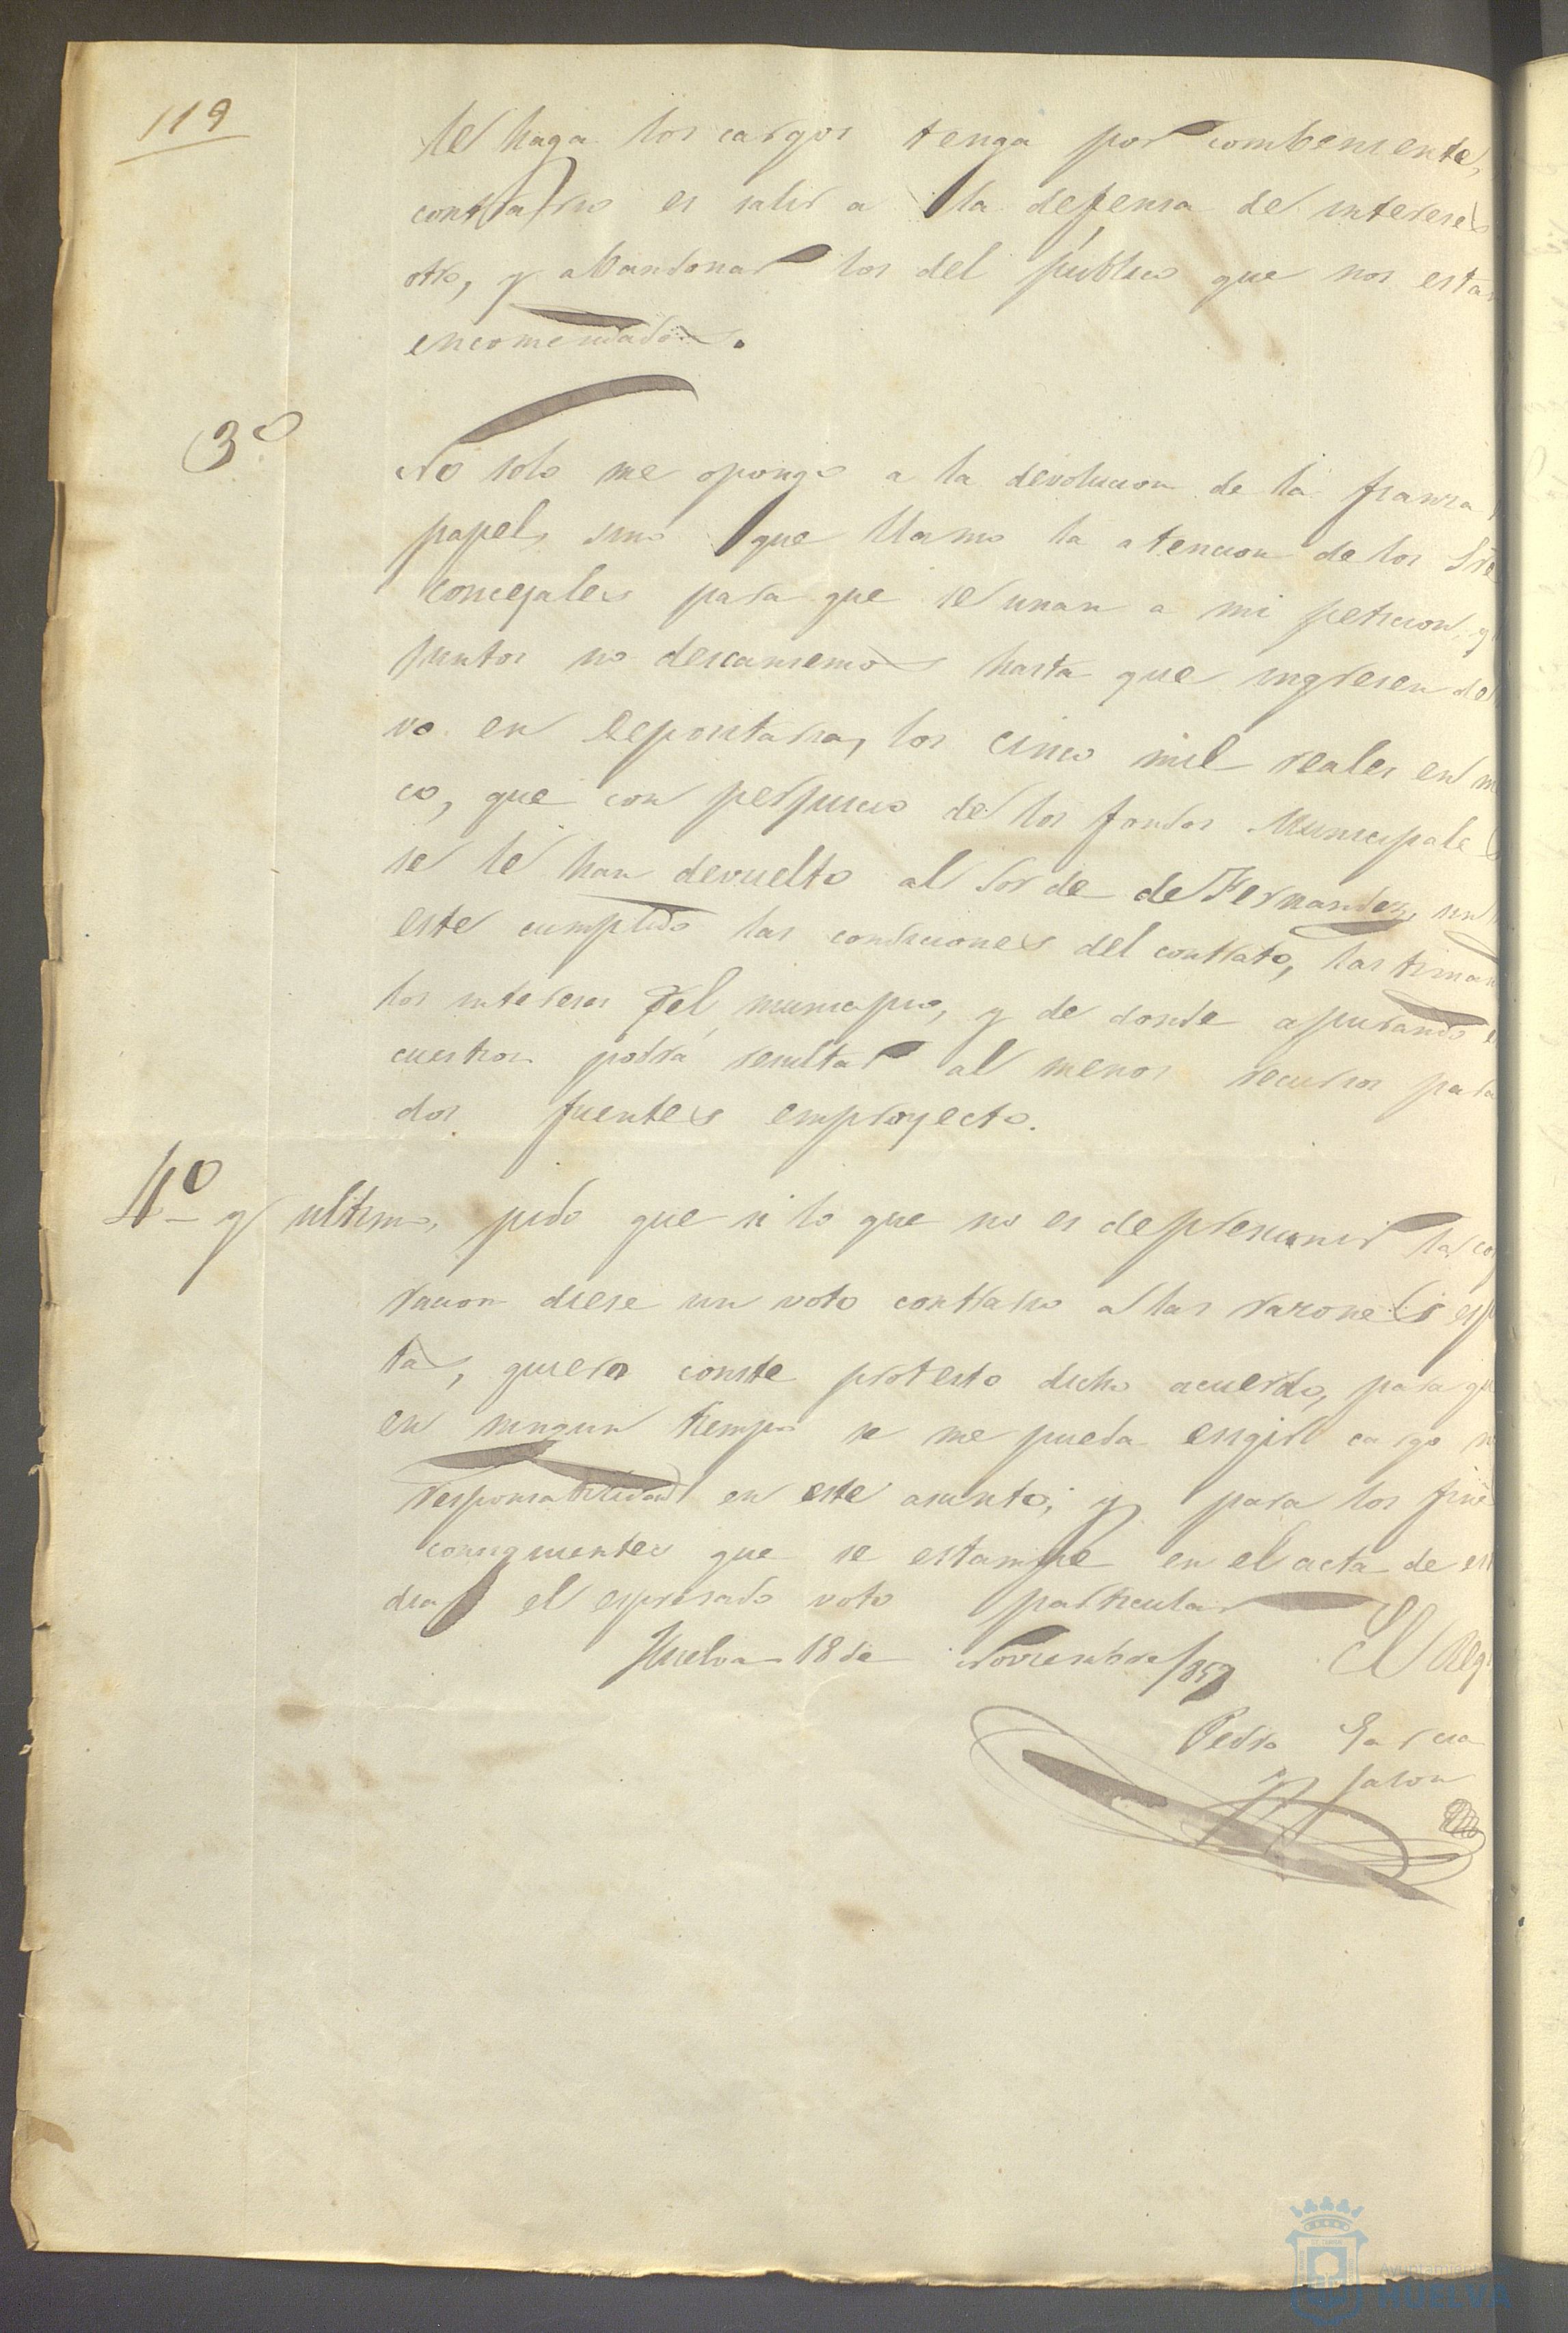 119
le haga los cargos tenga por combeniente,
contrario es salir a la defensa de intereses
otro, y abandonar los del público que nos estan
encomendados.
3º
No solo me opongo a la devolucion de la fianza
papel, sino que llamo la atencion de los Sres
concejales para que se unan a mi peticion, y
juntos no descansemos hasta que ingresen de
vo en depositaria, los cinco mil reales en
co, que con perjuicio de los fondos Municipales
se le han devuelto al Sor de de Fernandez, sin
este cumplido las condiciones del contrato, lastiman
los intereses del municipio, y de donde apurando
cuestion podrá resultar al menos recursos para
dos fuentes emproyecto.
4º y ultimo, pido que si lo que no es depresumir la co
racion diese un voto contrario a las razones esp
tas, quiero conste protesto dicho acuerdo, para q
en ningun tiempo se me pueda exigir cargo n
responsabilidad en este asunto; y para los fines
consiguientes que se estampe en el acta de es
dia el espresado voto particular
Huelva 18 de Noviembre/857 El Reg
Pedro Garcia
y Jalon
Ayuntamiento
HUELVA